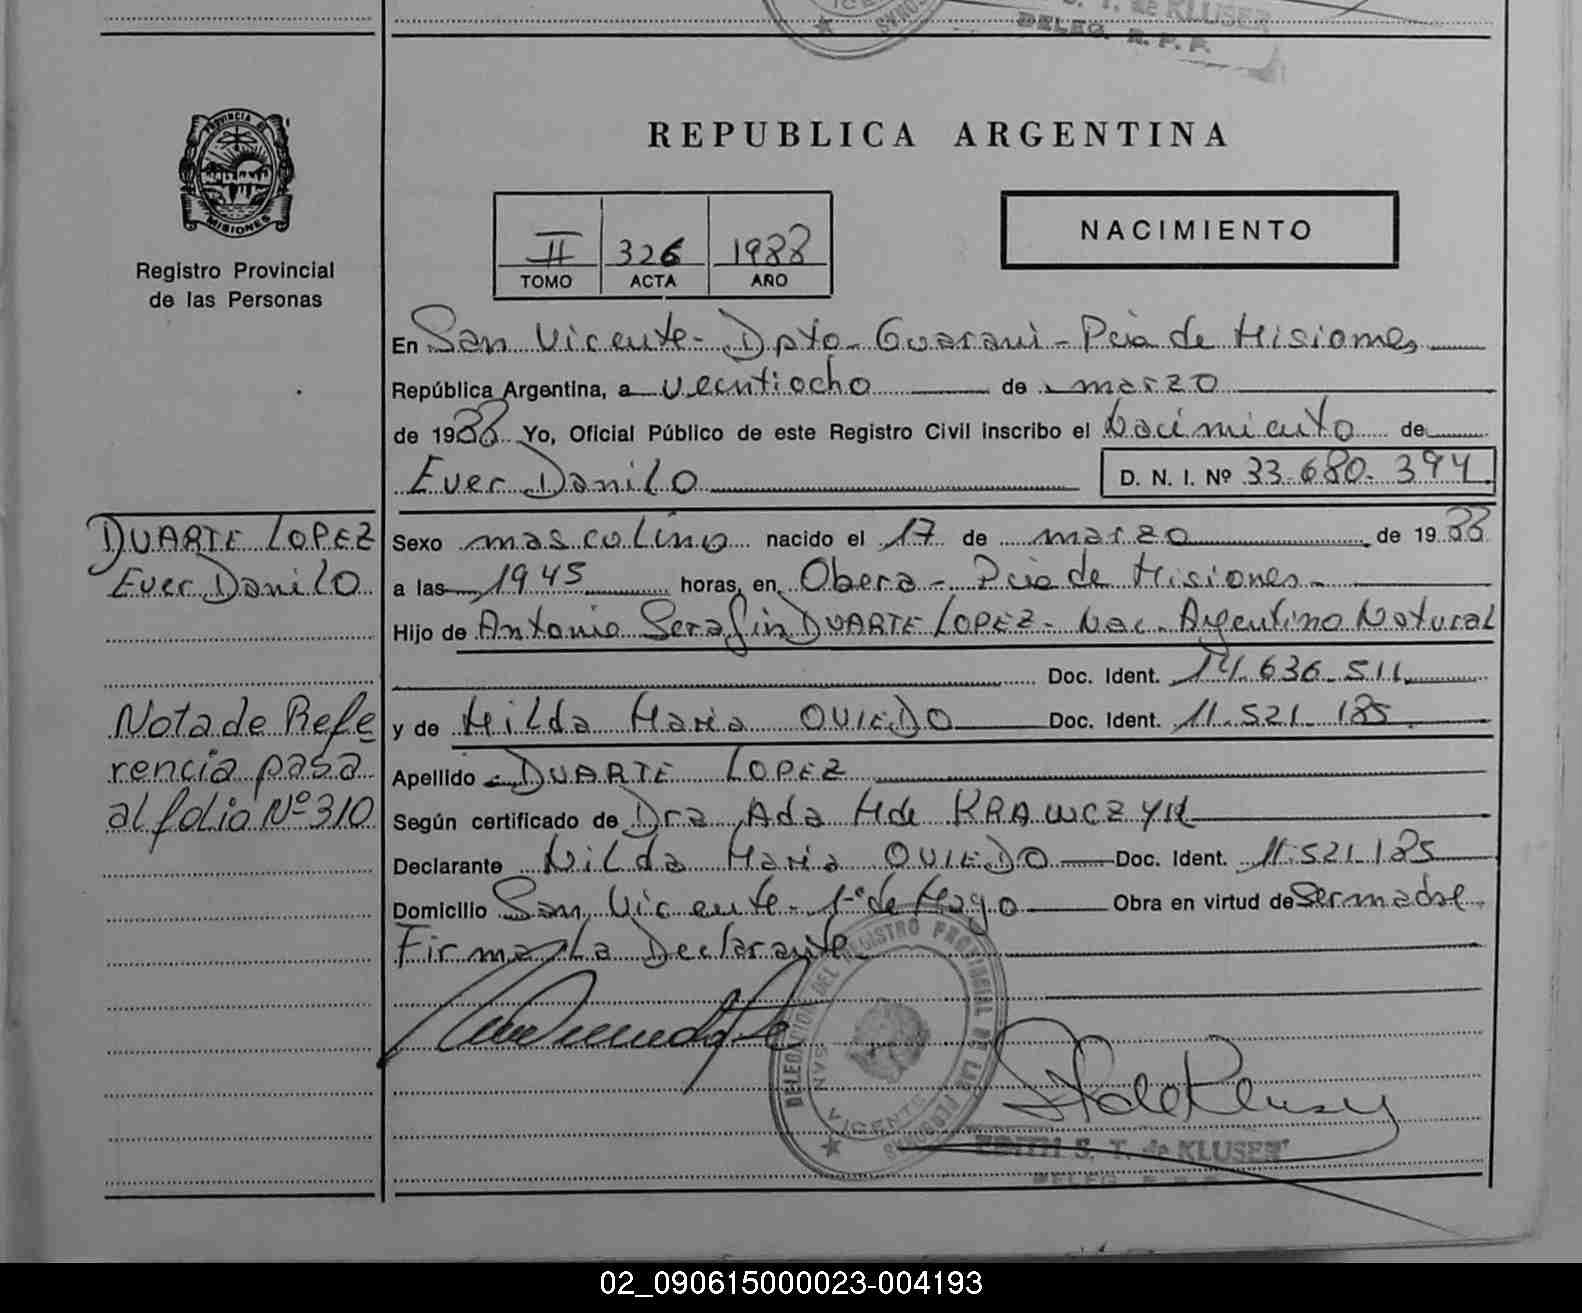 S. T. de KLUSER
DELEG. R. P. P.
PROVINCIA DE
MISIONES
Registro Provincial
de las Personas
REPUBLICA ARGENTINA
II 326 1988
TOMO ACTA AÑO
NACIMIENTO
En San Vicente - Dpto - Guarani - Pcia de Misiones
República Argentina, a veintiocho de marzo
de 1988 Yo, Oficial Público de este Registro Civil inscribo el Nacimiento de
Ever Danilo D. N. I. Nº 33.680.394
DUARTE LOPEZ
Ever Danilo
Sexo masculino nacido el 17 de marzo de 1988
a las 1945 horas, en Obera - Pcia de Misiones -
Hijo de Antonio Serafin DUARTE LOPEZ - Nac. Argentino Natural
Doc. Ident. 14.636.511
y de Hilda Maria OVIEDO Doc. Ident. 11.521.185
Nota de Refe
rencia pasa
al folio Nº 310
Apellido DUARTE LOPEZ
Según certificado de Dra Ada H de KRAWCZYK
Declarante Nilda Maria OVIEDO Doc. Ident. 11.521.185
Domicilio San Vicente - 1º de Mayo Obra en virtud de ser madre
Firma La Declarante
DELEGACION DEL REGISTRO PROVINCIAL DE LAS PERSONAS
SAN VICENTE
EDITH S. T. de KLUSER
DELEG. R. P. P.
02_090615000023-004193